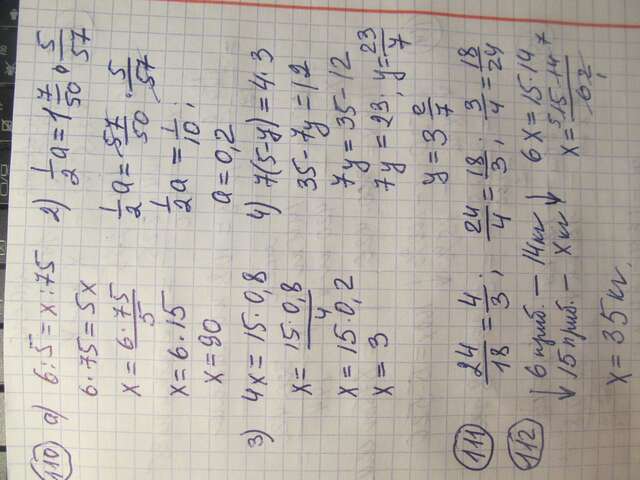 110 а) 6:5=x:75
6·75=5x
x=6·75/5
x=6·15
x=90
2) 1/2 a=1 7/50 · 5/57
1/2 a=57/50 · 5/57
1/2 a=1/10;
a=0,2
3) 4x=15·0,8
x=15·0,8/4
x=15·0,2
x=3
4) 7(5-y)=4·3
35-7y=12
7y=35-12
7y=23; y=23/7
y=3 2/7
111 24/18=4/3; 24/4=18/3; 3/4=18/24
112 ↓ 6 приб. – 14кг ↓ 6x=15·14
↓ 15 приб. – xкг ↓ x=5 15·14 7/6 2;
x=35кг.